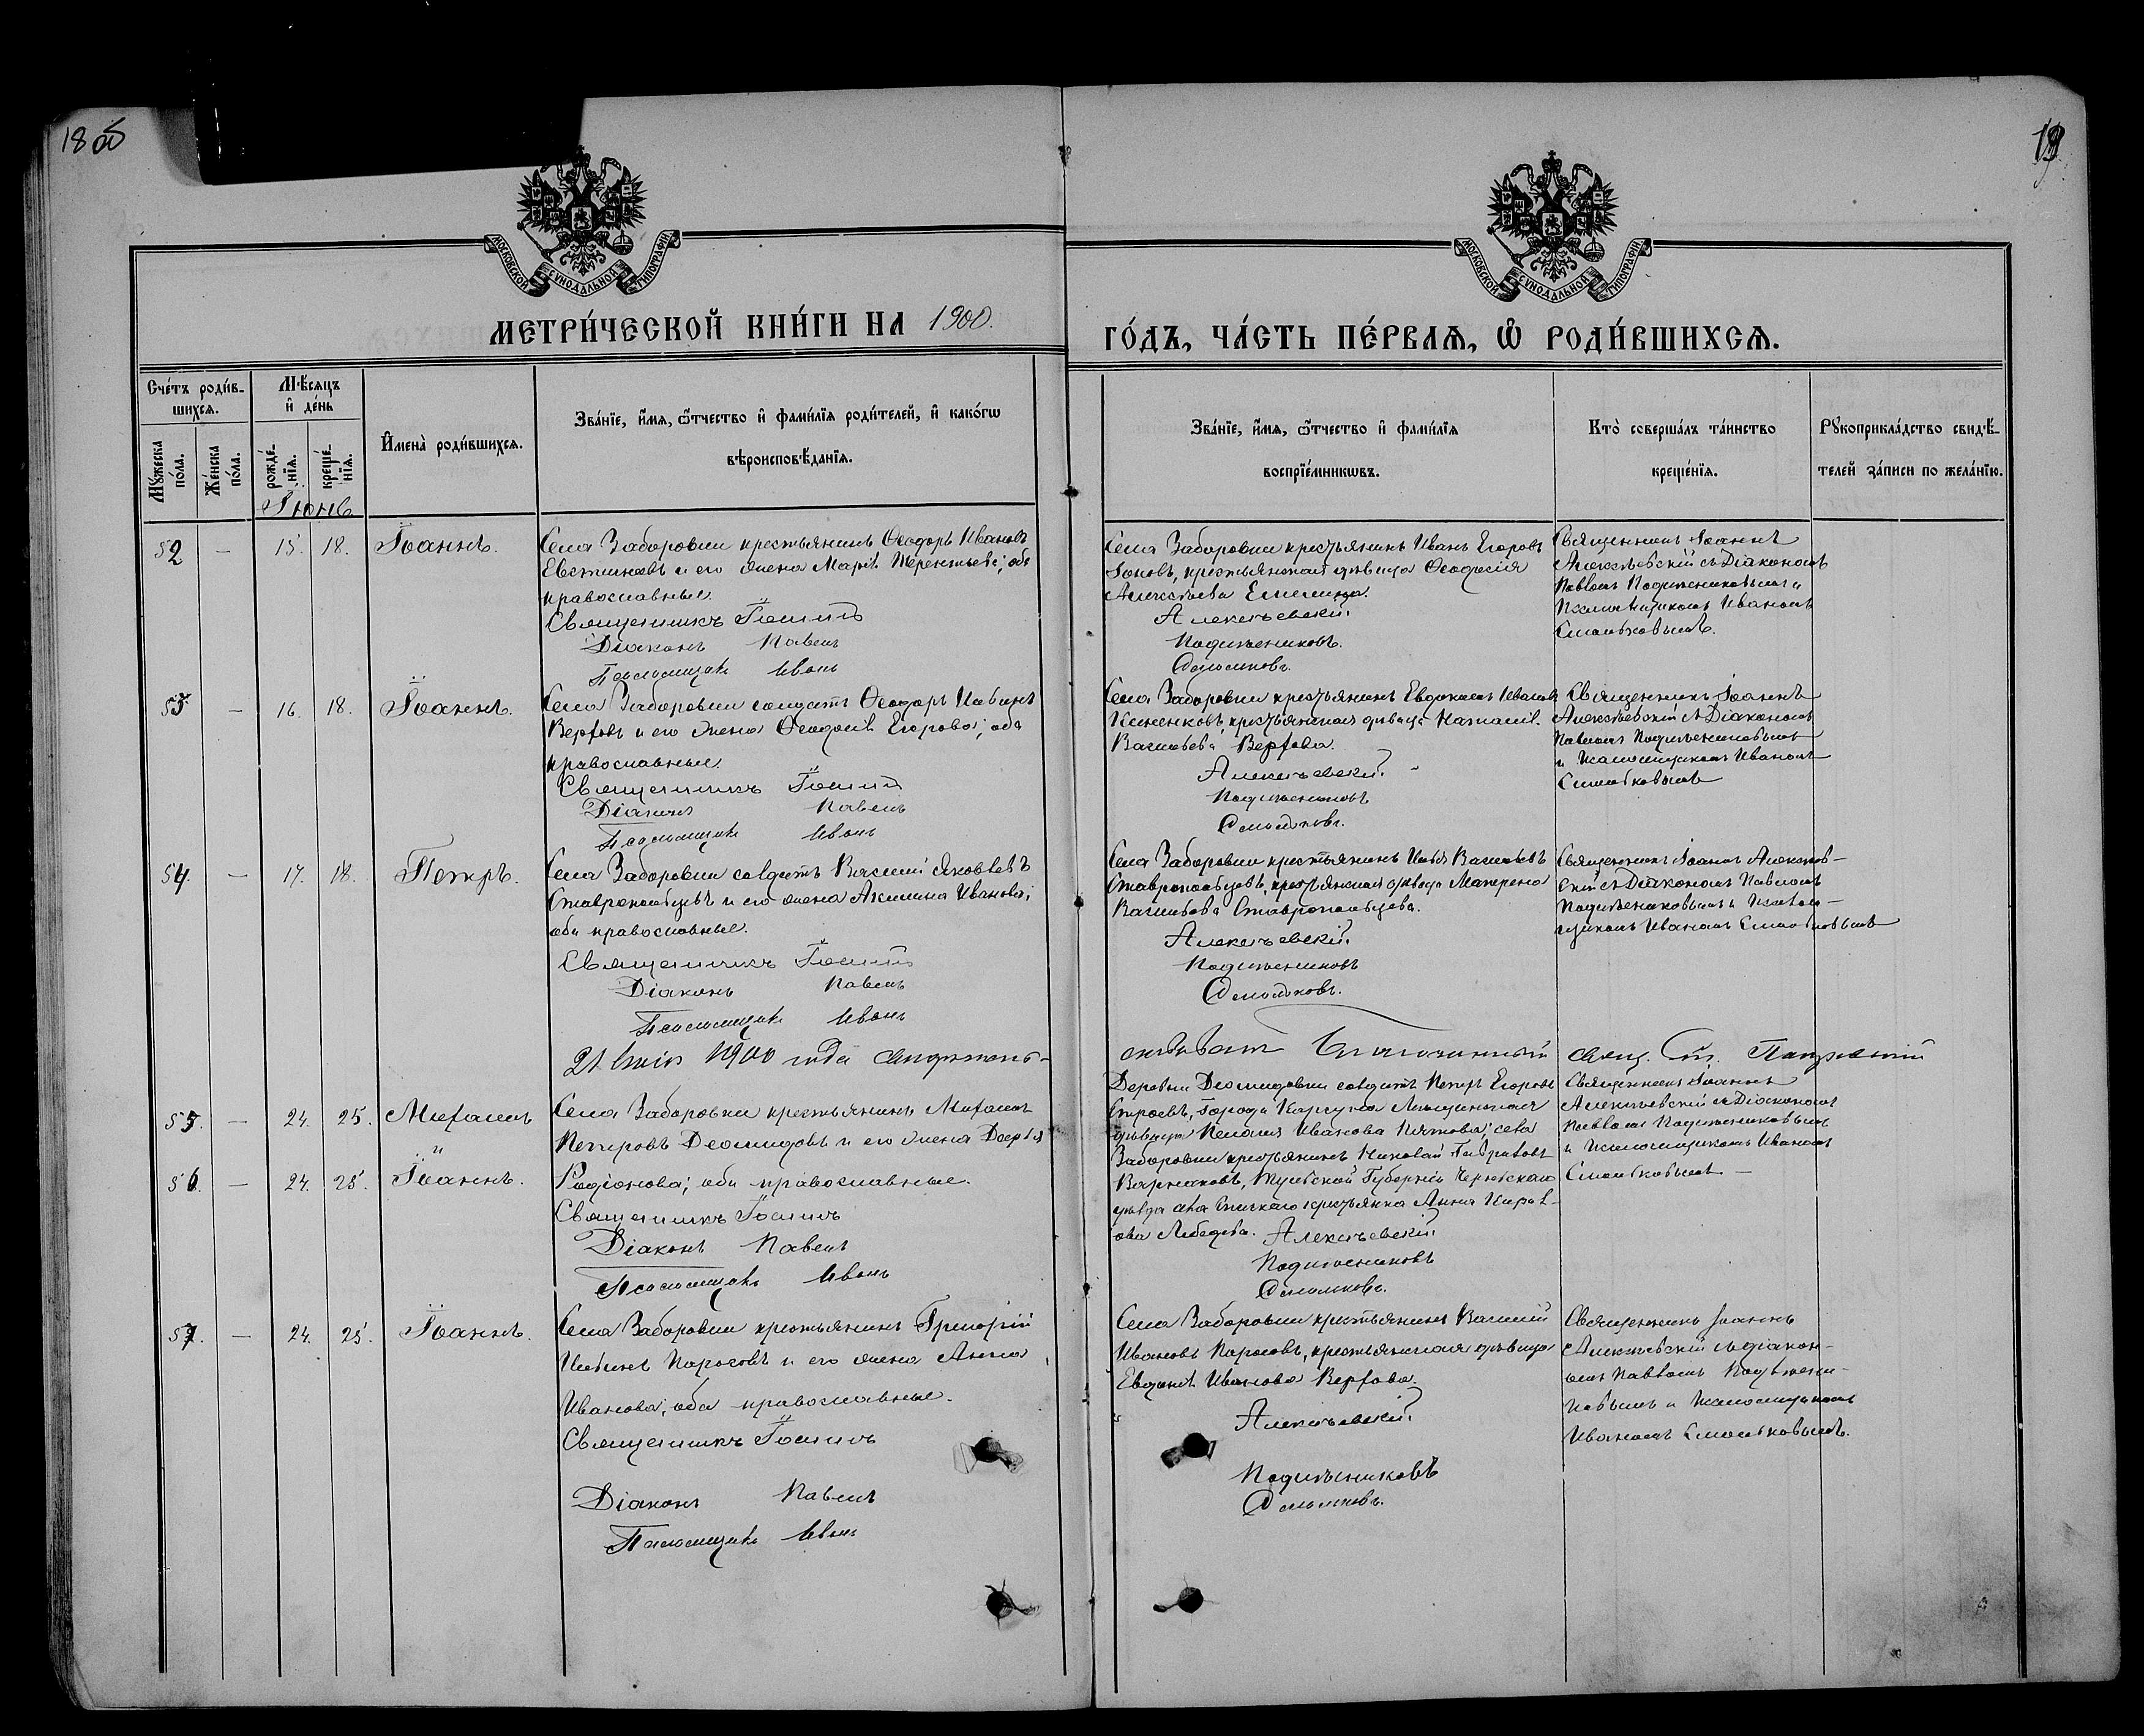 18 об
19
МОСКОВСКОЙ СѴНОДАЛЬНОЙ ТИПОГРАФІИ
МОСКОВСКОЙ СѴНОДАЛЬНОЙ ТИПОГРАФІИ
МЕТРИ́ЧЕСКОЙ КНИ́ГИ НА 1900.
ГО́ДЪ, ЧА́СТЬ ПЕ́РВАѦ, Ѡ҆ РОДИ́ВШИХСѦ.
Сче́тъ роди́в-
шихсѧ.
Мꙋ́жеска по́ла.
Же́нска по́ла.
Мѣ́сѧцъ
и҆ де́нь
рожде́-
нїѧ.
креще́-
нїѧ.
Іюнь
И҆мена̀ роди́вшихсѧ.
Зва́нїе, и҆́мѧ, ѻ҆́тчество и҆ фами́лїѧ роди́телей, и҆ како́гѡ
вѣроисповѣ́данїѧ.
Зва́нїе, и҆́мѧ, ѻ҆́тчество и҆ фами́лїѧ
воспрїе́мникѡвъ.
Кто̀ соверша́лъ та́инство
креще́нїѧ.
Рꙋкоприкла́дство свидѣ́-
телей за́писи по жела́нїю.
52 — 15. 18. Іоаннъ.
Села Заборовки крестьянинъ Ѳеодоръ Ивановъ
и его жена Марія Терентьева; оба
православные.
Священникъ Іоаннъ
Діаконъ Павелъ
Псаломщикъ Иванъ
Села Заборовки крестьянинъ Иванъ Егоровъ
крестьянская дѣвица Ѳеодосія
Алексѣева
Алексѣевскій.
Подлѣсниковъ.
Смольковъ.
Священникъ Іоаннъ
Алексѣевскій съ Діакономъ
Павломъ Подлѣсниковымъ и
Псаломщикомъ Иваномъ
Смольковымъ.
53 — 16. 18. Іоаннъ.
Села Заборовки солдатъ Ѳеодоръ
и его жена Ѳеодосія Егорова; оба
православные.
Священникъ Іоаннъ
Діаконъ Павелъ
Псаломщикъ Иванъ
Села Заборовки крестьянинъ Евдокимъ Ивановъ
крестьянская дѣвица Наталія
Васильева
Алексѣевскій.
Подлѣсниковъ
Смольковъ.
Священникъ Іоаннъ
Алексѣевскій съ Діакономъ
Павломъ Подлѣсниковымъ
и Псаломщикомъ Иваномъ
Смольковымъ
54. — 17. 18. Петръ.
Села Заборовки солдатъ Василій Яковлевъ
Ставропольцевъ и его жена Акилина Иванова;
оба православные.
Священникъ Іоаннъ
Діаконъ Павелъ
Псаломщикъ Иванъ
Села Заборовки крестьянинъ Илья Васильевъ
Ставропольцевъ, крестьянская дѣвица Матрена
Васильева Ставропольцева.
Алексѣевскій.
Подлѣсниковъ
Смольковъ.
Священникъ Іоаннъ Алексѣев-
скій съ Діакономъ Павломъ
Подлѣсниковымъ и Псалом-
щикомъ Иваномъ Смольковымъ
21 1900 года свидѣтель-
ствовалъ Благочинный свящ.
55. — 24. 25. Михаилъ
и
56. — 24. 25. Іоаннъ.
Села Заборовки крестьянинъ Михаилъ
Петровъ Деомидовъ и его жена Дарья
Родіонова; оба православные.
Священникъ Іоаннъ
Діаконъ Павелъ
Псаломщикъ Иванъ
Деревни Деомидовки солдатъ Петръ Егоровъ
города Карсуна
дѣвица Пелагія Иванова села
Заборовки крестьянинъ Николай Гавриловъ
Тульской Губерніи
уѣзда села крестьянка Анна
Лебедева. Алексѣевскій.
Подлѣсниковъ
Смольковъ.
Священникъ Іоаннъ
Алексѣевскій съ Діакономъ
Павломъ Подлѣсниковымъ
и Псаломщикомъ Иваномъ
Смольковымъ —
57. — 24. 25. Іоаннъ.
Села Заборовки крестьянинъ Григорій
и его жена Анна
Иванова; оба православные.
Священникъ Іоаннъ
Діаконъ Павелъ
Псаломщикъ Иванъ
Села Заборовки крестьянинъ Василій
Ивановъ крестьянская дѣвица
Евдокія Иванова
Алексѣевскій.
Подлѣсниковъ
Смольковъ.
Священникъ Іоаннъ
Алексѣевскій съ діакон-
омъ Павломъ Подлѣсни-
ковымъ и Псаломщикомъ
Иваномъ Смольковымъ.